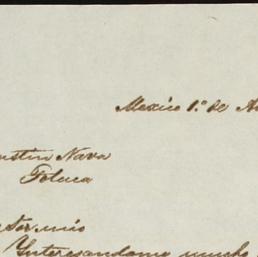 Mexico 1.º de A
ustin Nava
Toluca
Sor. mio
Interesandome mucho